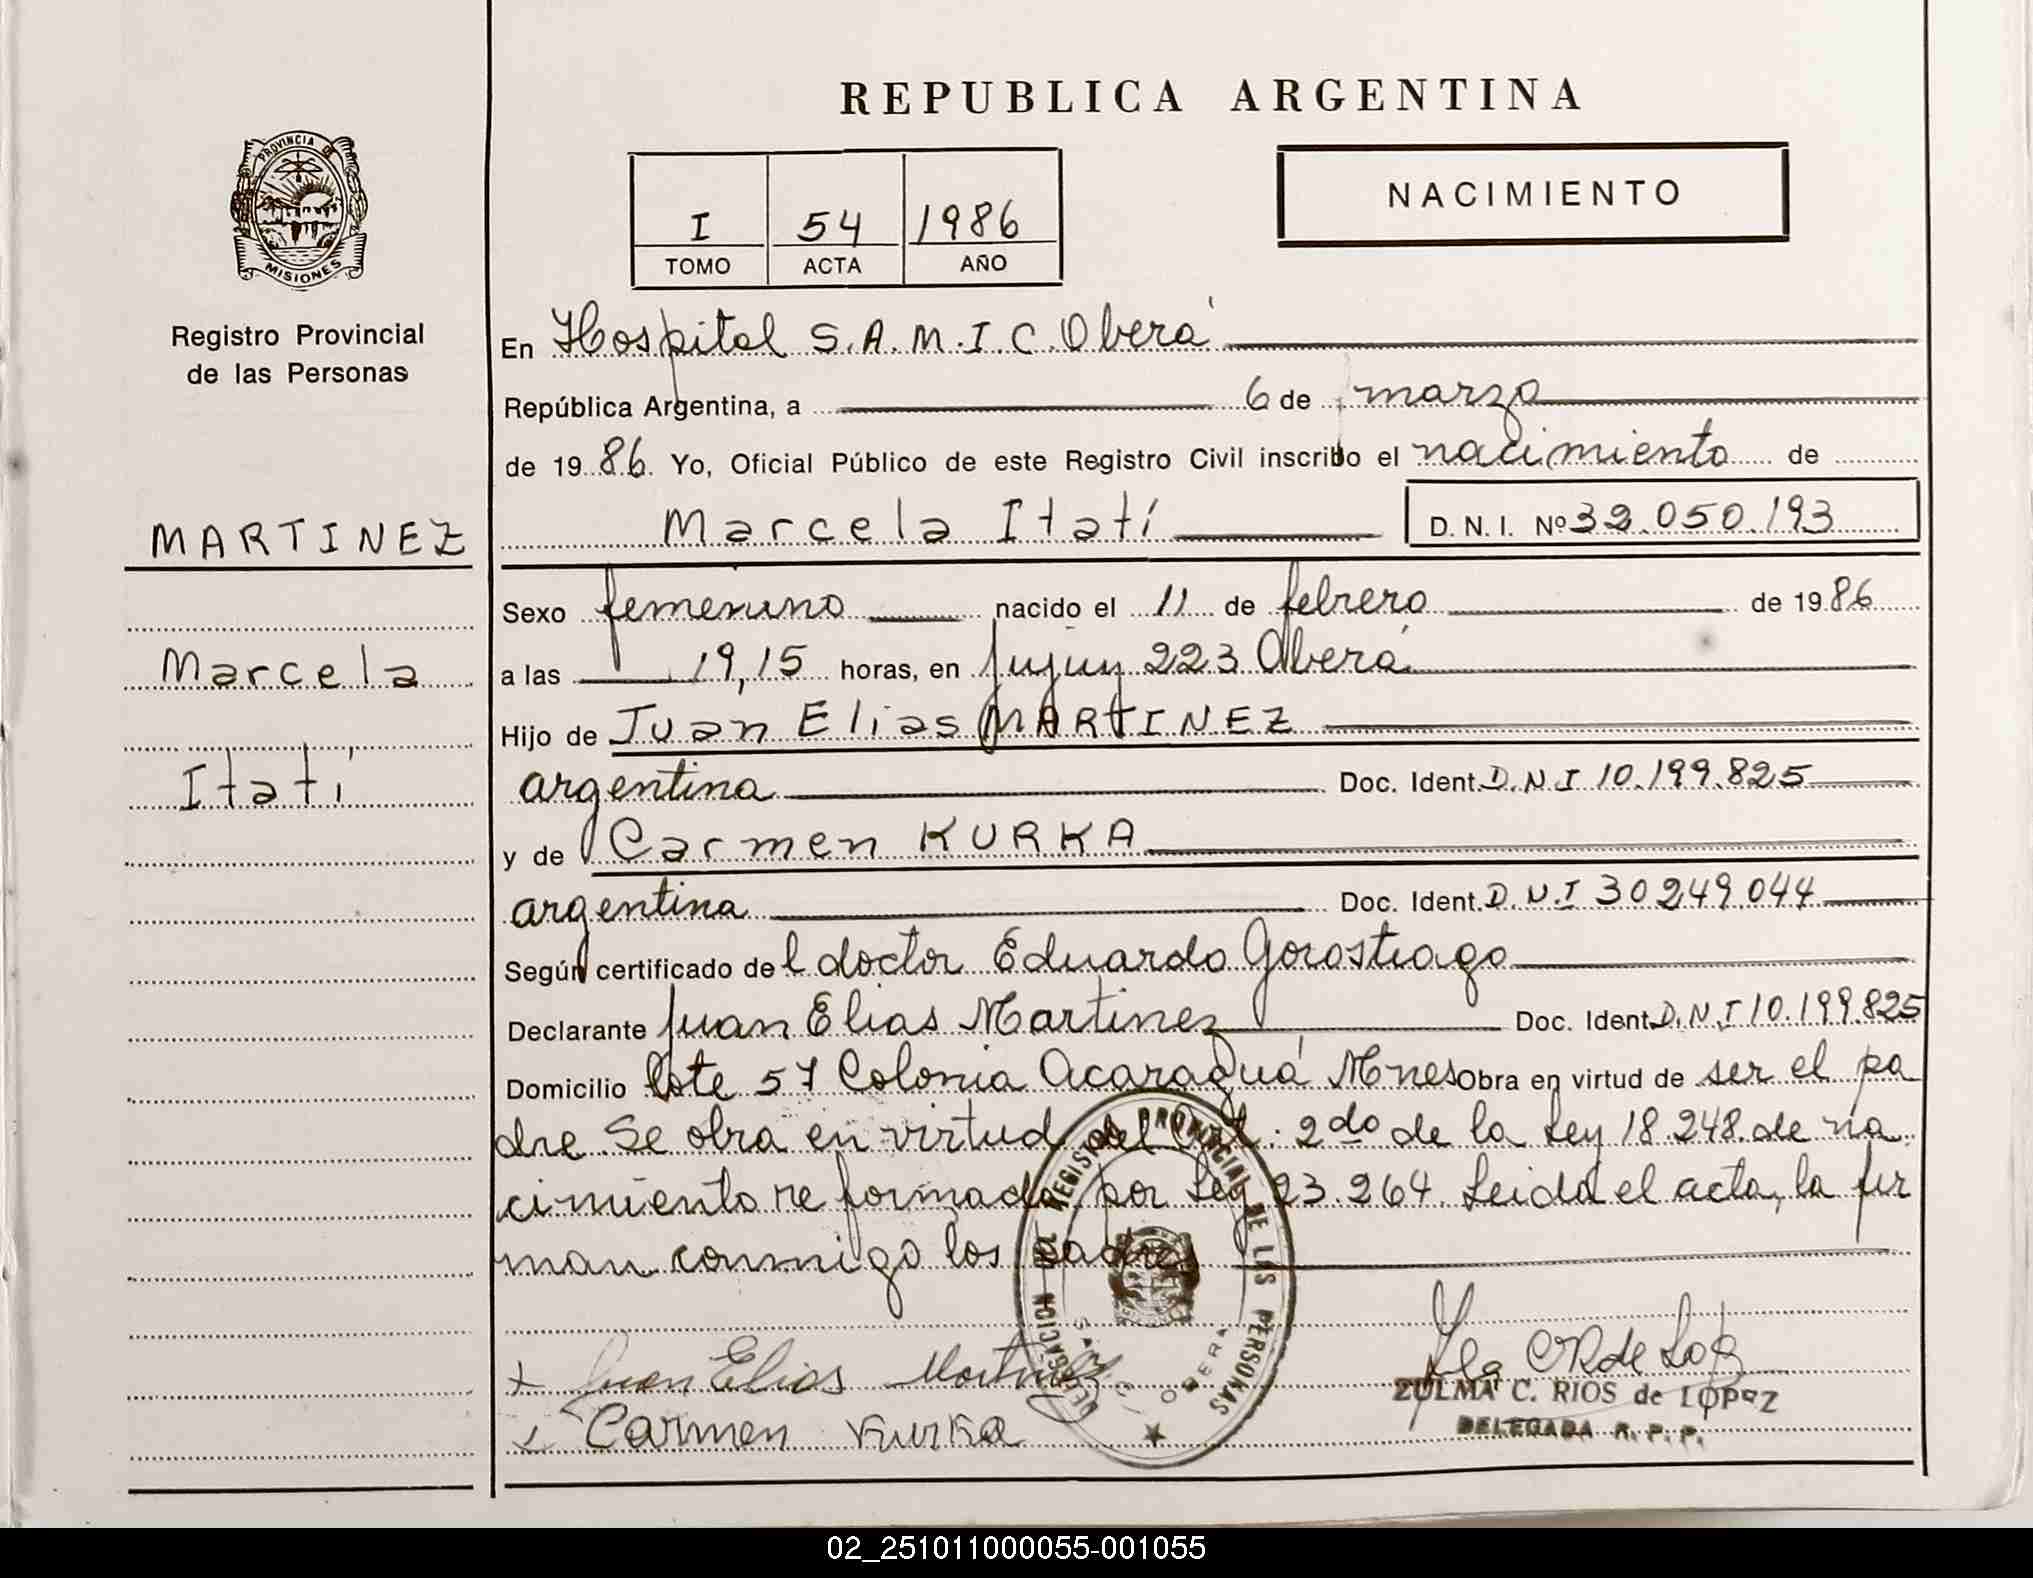 REPUBLICA ARGENTINA
PROVINCIA DE
MISIONES
Registro Provincial
de las Personas
I 54 1986
TOMO ACTA AÑO
NACIMIENTO
En Hospital S.A.M.I.C. Oberá
República Argentina, a 6 de marzo
de 1986. Yo, Oficial Público de este Registro Civil inscribo el nacimiento de
MARTINEZ
Marcela Itatí D.N.I. Nº 32.050.193
Sexo femenino nacido el 11 de febrero de 1986
Marcela
a las 19,15 horas, en Jujuy 223 Oberá
Hijo de Juan Elias MARTINEZ
Itatí
argentina Doc. Ident. D.N.I 10.199.825
y de Carmen KURKA
argentina Doc. Ident. D.N.I 30249.044
Según certificado del doctor Eduardo Gorostiago
Declarante Juan Elias Martinez Doc. Ident. D.N.I 10.199.825
Domicilio lote 57 Colonia Acaraguá Mnes Obra en virtud de ser el pa
dre. Se obra en virtud del Art. 2do de la Ley 18.248. de na
cimiento reformada por Ley 23.264. Leida el acta, la fir
man conmigo los padres
DELEGACION DEL REGISTRO PROVINCIAL DE LAS PERSONAS
OBERA
+ Juan Elias Martinez
Carmen Kurka
ZULMA C. RIOS de LOPEZ
DELEGADA R.P.P.
02_251011000055-001055